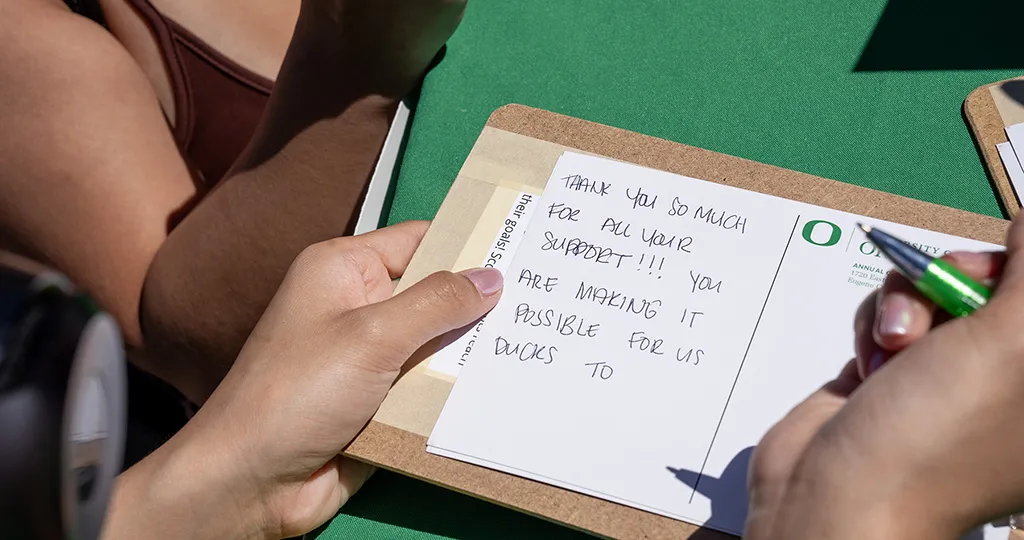 THANK YOU SO MUCH
FOR ALL YOUR
SUPPORT!!! YOU
ARE MAKING IT
POSSIBLE FOR US
DUCKS TO
their goals!
O
ANNUAL
1720 East
Eugene